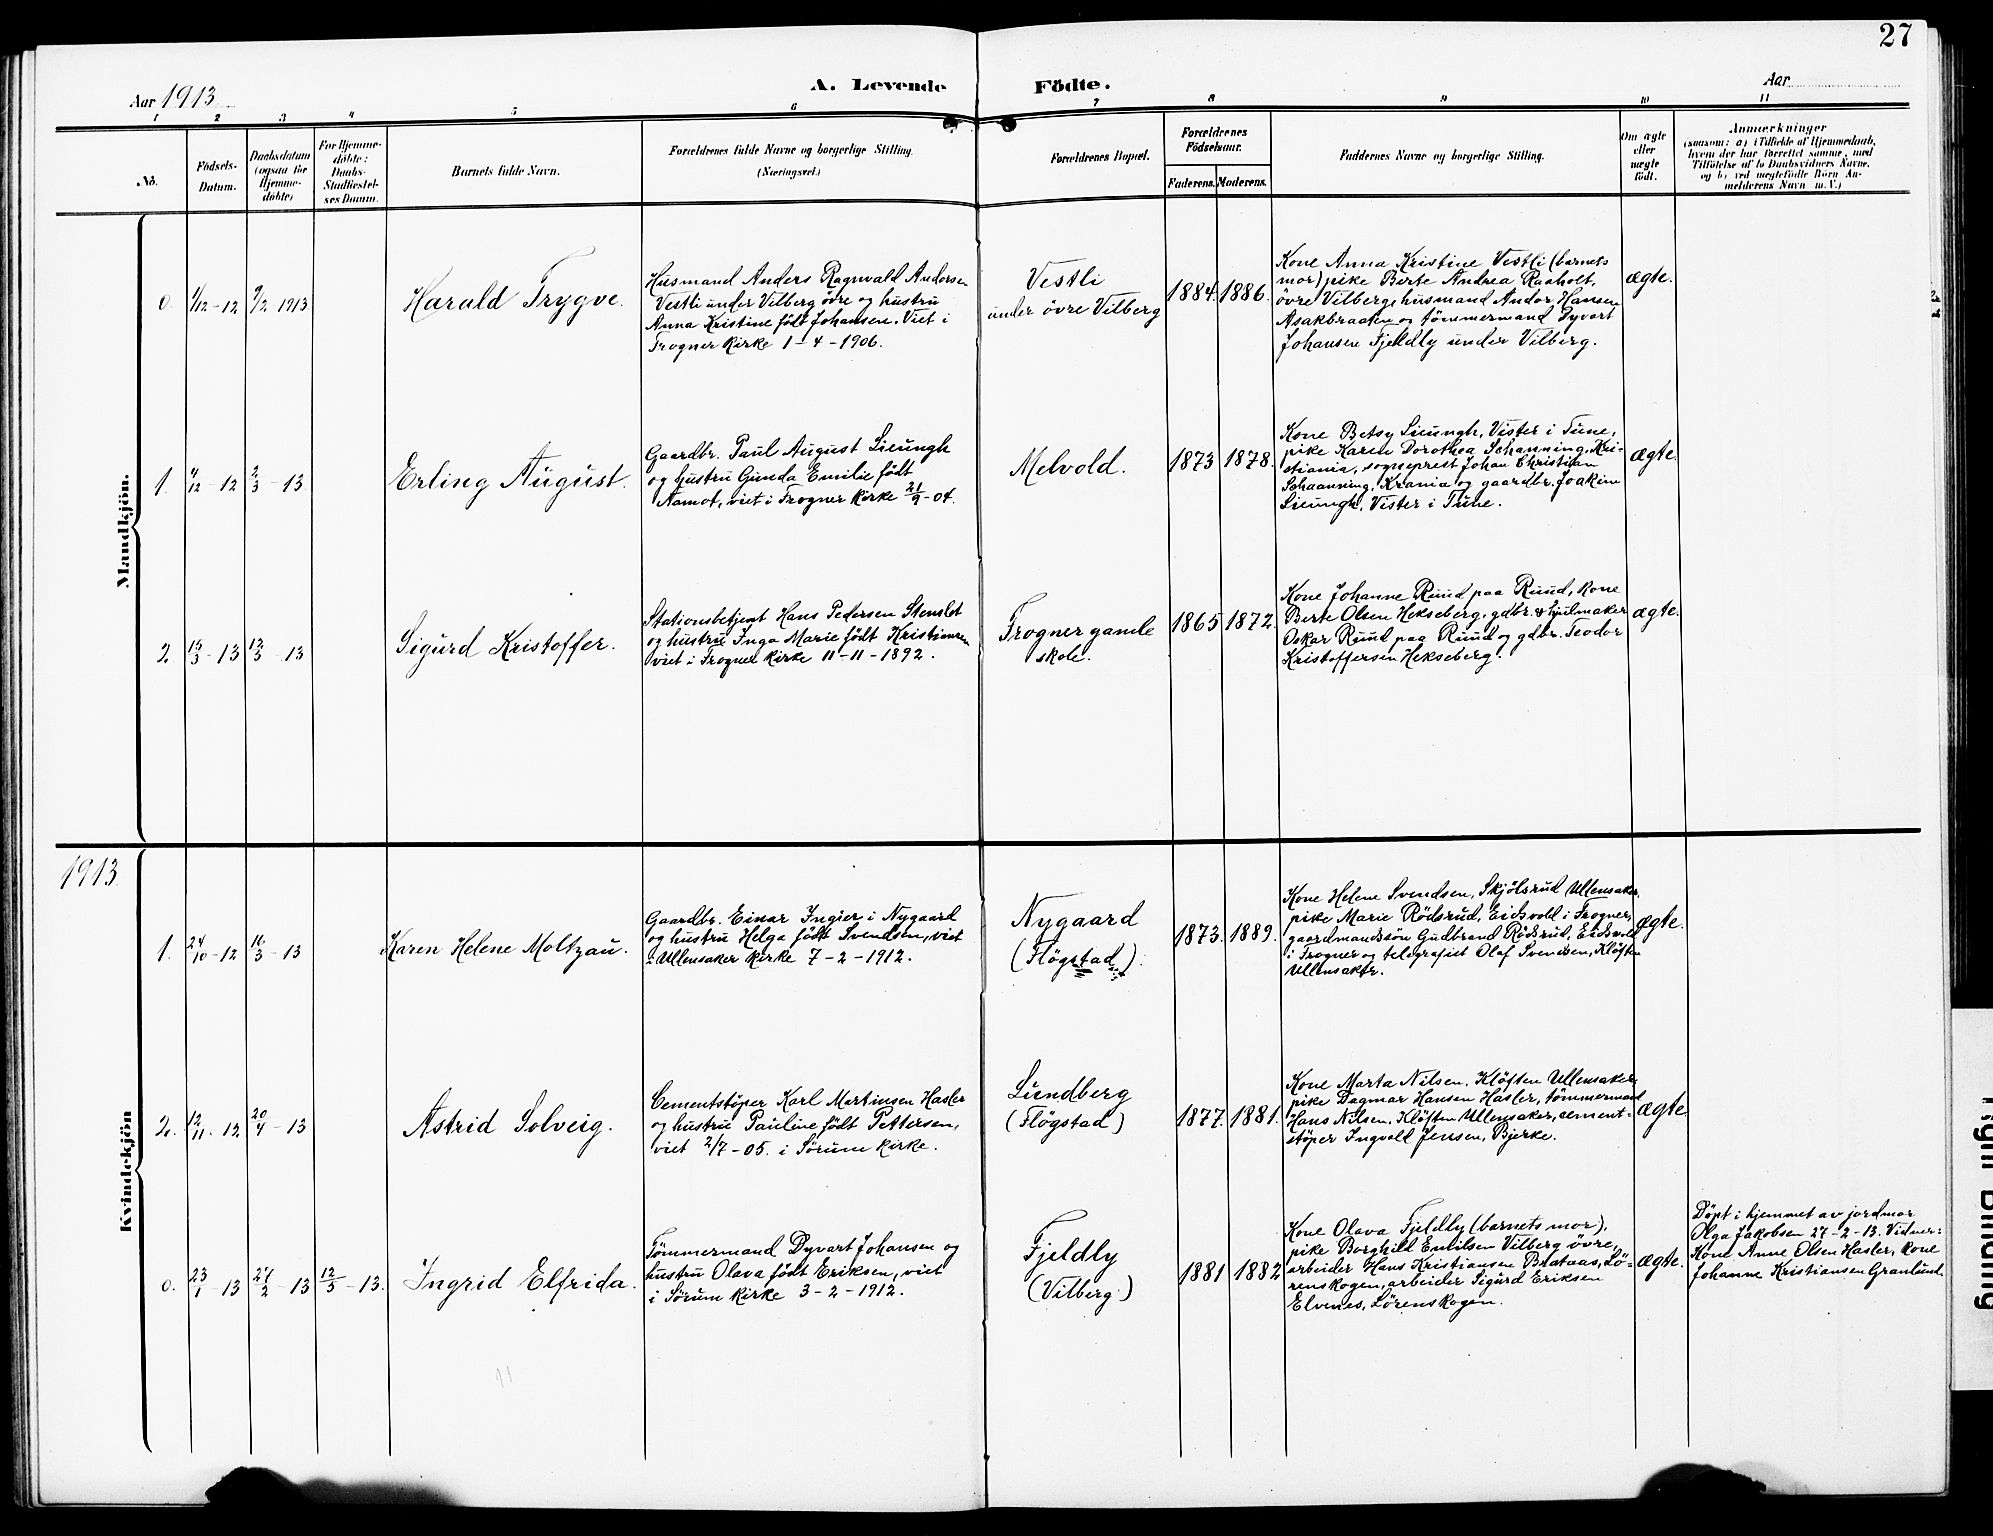 27
Aar 1913
A. Levende Födte.
Aar
1 2 3 4 5 6 7 8 9 10 11
No.
Födsels-
Datum.
Daabsdatum
(ogsaa för
Hjemme-
döbte)
For Hjemme-
döbte:
Daabs-
Stadfæstel-
ses Datum.
Barnets fulde Navn.
Forældrenes fulde Navne og borgerlige Stilling.
(Næringsvei.)
Forældrenes Bopæl.
Forældrenes
Födselsaar.
Faderens. Moderens.
Faddernes Navne og borgerlige Stilling.
Om ægte
eller
uægte
födt.
Anmærkninger
(saasom: a) i Tilfælde af Hjemmedaab,
hvem der har forrettet samme, med
Tilföielse af to Daabsvidners Navne,
og b) ved uægtefödte Börn An-
melderens Navn m. V.)
Mandkjön.
0. 1/12-12 9/2 1913
Harald Trygve.
Husmand Anders Ragnvald Andersen
Vestli under Vilberg övre og hustru
Anna Kristine födt Johansen. Viet i
Frogner kirke 1-4-1906.
Vestli
under övre Vilberg
1884. 1886.
Kone Anna Kristine Vestli (barnets
mor) pike Berte Andrea Raaholt,
övre Vilberg, husmand Andor Hansen
Asakbraaten og tömmermand Dyvart
Johansen Fjeldly under Vilberg.
ægte.
1. 4/12-12 2/3-13
Erling August.
Gaardbr. Paul August Lieungh
og hustru Gunda Emilie födt
Aamot, viet i Frogner kirke 21/9-04.
Melvold.
1873 1878.
Kone Betsy Lieungh, Vister i Tune,
pike Karen Dorothea Schanning, Kri-
stiania, sogneprest Johan Christian
Schaanning, Krania og gaardbr. Joakim
Lieungh, Vister i Tune.
ægte.
2. 3-13 12/3-13
Sigurd Kristoffer.
Stationsbetjent Hans Pedersen Stenslet
og hustru Inga Marie födt Kristiansen
viet i Frogner kirke 11-11-1892.
Frogner gamle
skole.
1865 1872
Kone Johanne Ruud paa Ruud, kone
Berte Olsen Hekseberg, gdbr. & hjulmaker
Oskar Ruud paa Ruud og gdbr. Teodor
Kristoffersen Hekseberg.
ægte.
1913.
Kvindekjön
1. 24/10-12 16/3-13
Karen Helene Moltzau.
Gaardbr. Einar Ingier i Nygaard
og hustru Helga födt Svendsen, viet
i Ullensaker kirke 7-2-1912.
Nygaard
(Flögstad).
1873. 1889.
Kone Helene Svendsen, Skjölsrud Ullensaker,
pike Marie Rödsrud, Eidsvold i Frogner,
gaardmandssön Gudbrand Rödsrud, Eidsvold
i Frogner og telegrafist Olaf Svendsen, Klöften
Ullensaker.
ægte.
2. 12/11.12 20/4-13
Astrid Solveig.
Cementstöper Karl Martinsen Hasler
og hustru Pauline födt Pettersen,
viet 2/7-05. i Sörum kirke.
Lundberg
(Flögstad)
1877. 1881.
Kone Marta Nilsen, Klöften Ullensaker,
pike Dagmar Hansen Hasler, tömmermand
Hans Nilsen, Klöften Ullensaker, cement-
stöper Ingvald Jensen, Bjerke.
ægte
0. 23/1-13 27/2-13 12/3-13.
Ingrid Elfrida.
Tömmermand Dyvart Johansen og
hustru Olava födt Eriksen, viet
i Sörum kirke 3-2-1912.
Fjeldly
(Vilberg.)
1881 1882
Kone Olava Fjeldly (barnets mor),
pike Borghild Emilsen Vilberg övre,
arbeider Hans Kristiansen Brataas, Lö-
renskogen, arbeider Sigurd Eriksen
Elvenes, Lörenskogen.
ægte.
Döpt i hjemmet av jordmor
Olga Jakobsen 27-2-13. Vidner:
Kone Anne Olsen Hasler, kone
Johanne Kristiansen Granlund.